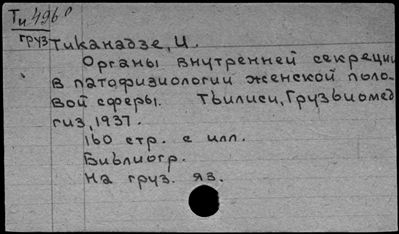 Ти 4960
груз
Тиканадзе, И.
Органы внутренней секреции
в патофизиологии женской поло-
вой сферы. Тбилиси, Грузбиомед
гиз, 1937.
160 стр. с илл.
Библиогр.
На груз. яз.